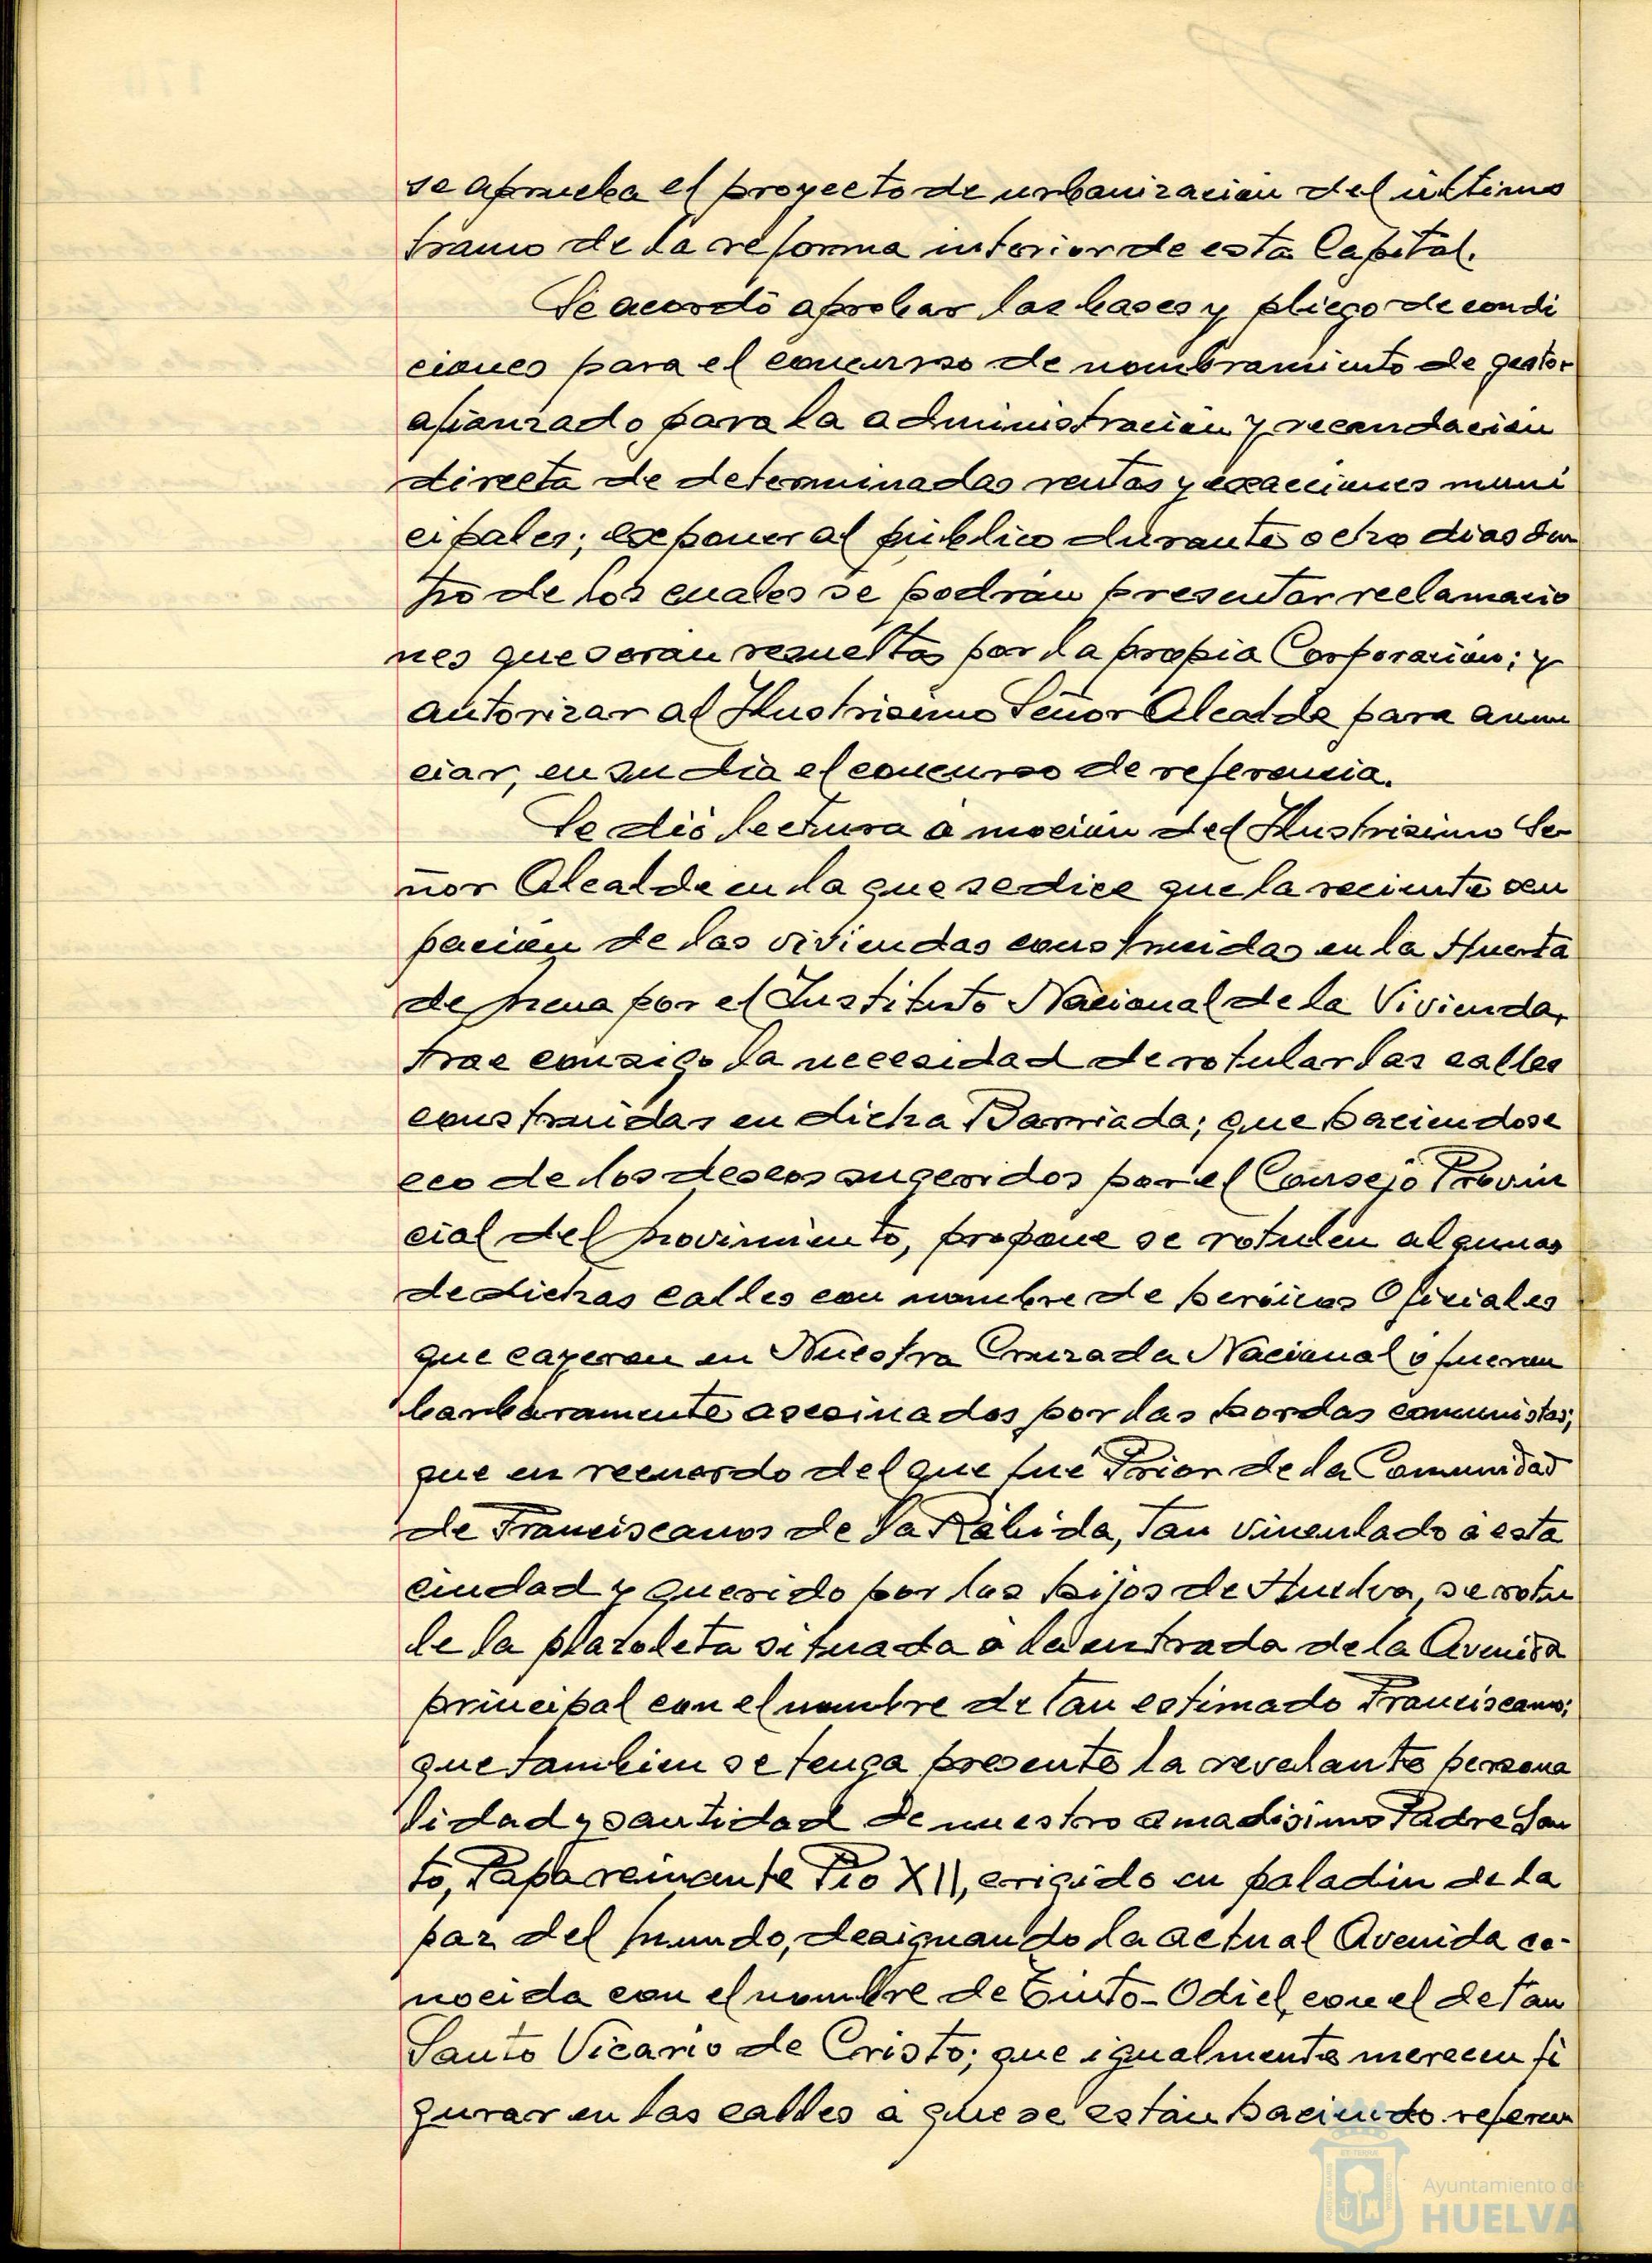 se aprueba el proyecto de urbanizacion del último
tramo de la reforma interior de esta Capital.
Se acordó aprobar las bases y pliego de condi
ciones para el concurso de nombramiento de gestor
afianzado para la administración y recaudación
directa de determinadas rentas y exacciones muni
cipales; exponer al público durante ocho dias den
tro de los cuales se podrán presentar reclamacio
nes que serán resueltas por la propia Corporación; y
autorizar al Ilustrisimo Señor Alcalde para anun
ciar, en su dia el concurso de referencia.
Se dió lectura á moción del Ilustrisimo Se-
ñor Alcalde en la que se dice que la reciente ocu
pación de las viviendas construidas en la Huerta
de Mena por el Instituto Nacional de la Vivienda,
trae consigo la necesidad de rotular las calles
construidas en dicha Barriada; que haciendose
eco de los deseos sugeridos por el Consejo Provin
cial del Movimiento, propone se rotulen algunas
de dichas calles con nombre de heróicos Oficiales
que cayeron en Nuestra Cruzada Nacional ó fueron
barbaramente asesinados por las hordas comunistas;
que en recuerdo del que fué Prior de la Comunidad
de Franciscanos de la Rábida, tan vinculado á esta
ciudad y querido por los hijos de Huelva, se rotu
le la plazoleta situada á la entrada de la Avenida
principal con el nombre de tan estimado Franciscano;
que tambien se tenga presente la revelante persona
lidad y santidad de nuestro amadisimo Padre San
to, Papa reinante Pio XII, erigido en paladin de la
paz del Mundo, designando la actual Avenida co-
nocida con el nombre de Tinto-Odiel, con el de tan
Santo Vicario de Cristo; que igualmente merecen fi
gurar en las calles á que se están haciendo referen
Ayuntamiento de
HUELVA